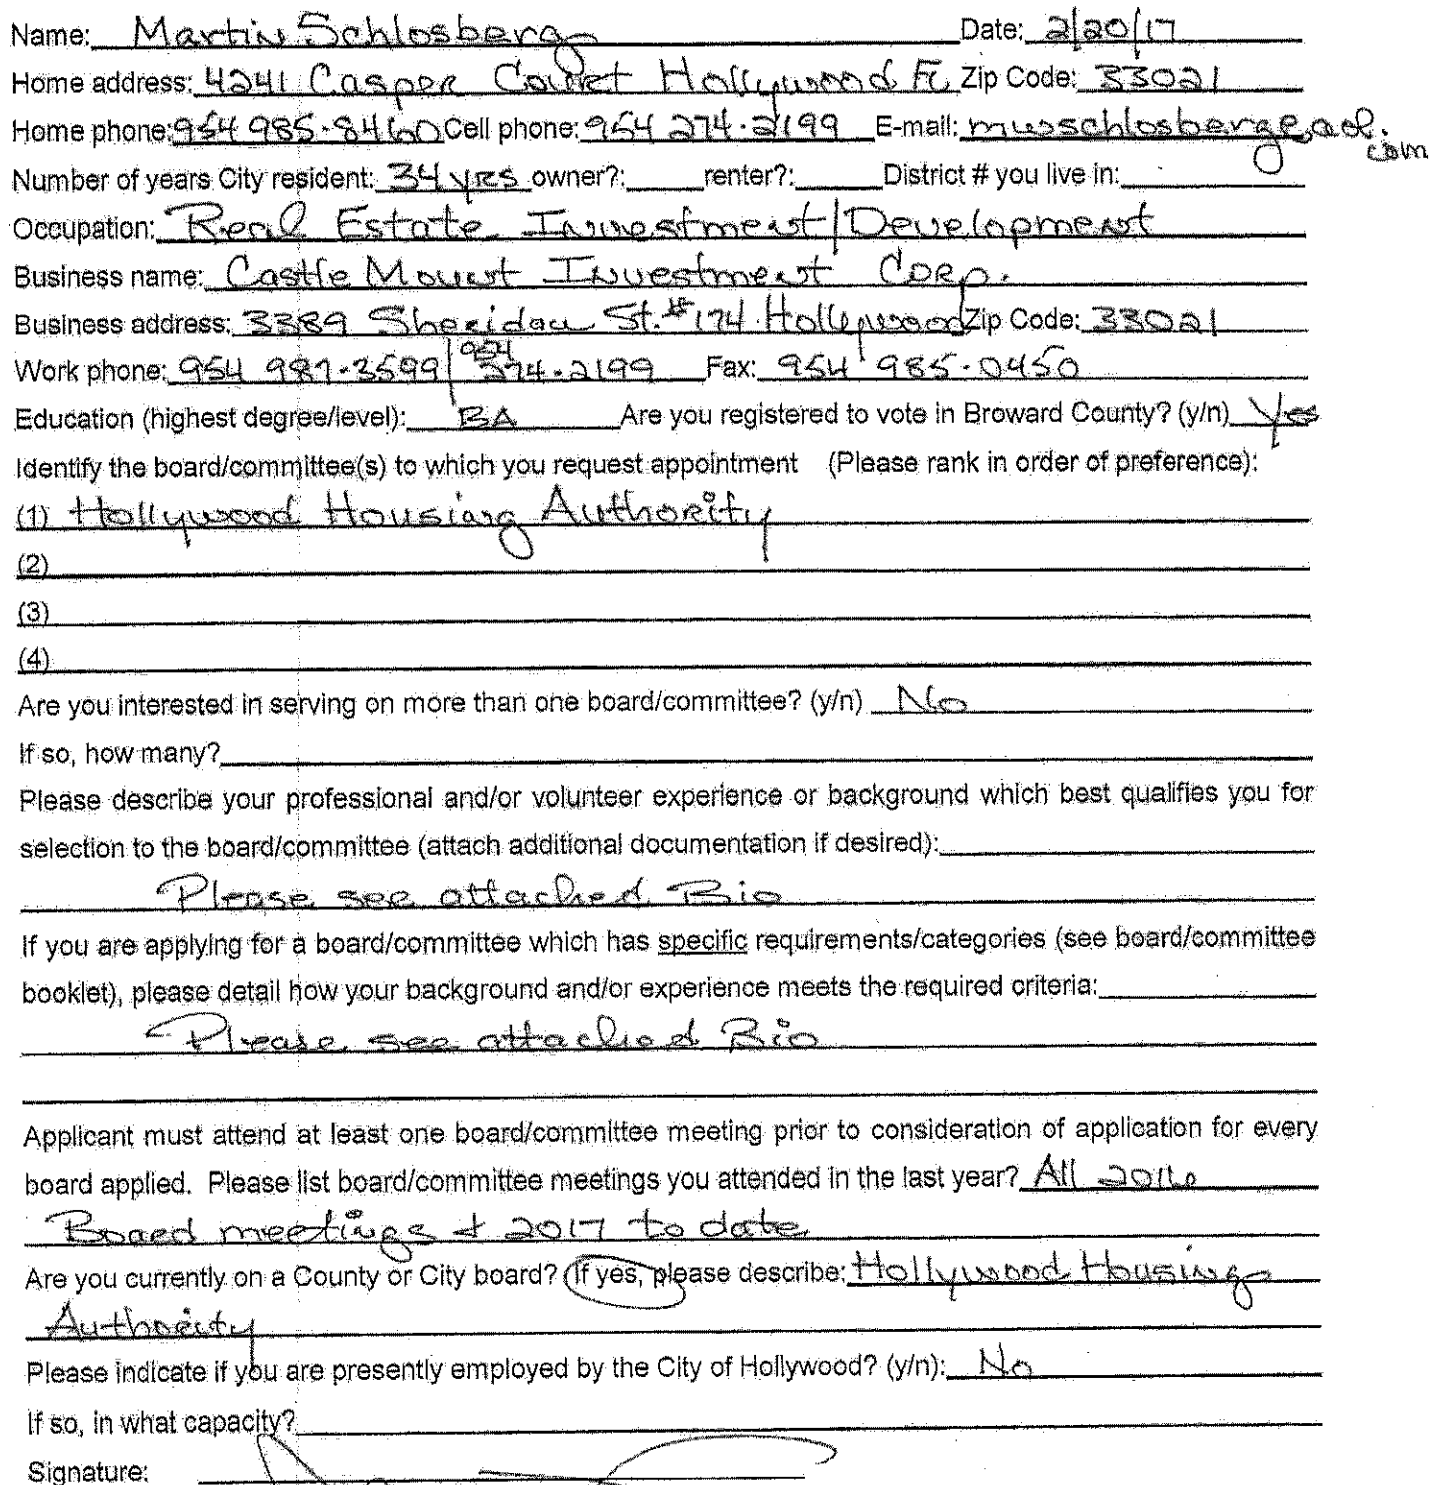 Name: Martin Schlosberg Date: 2/20/17
Home address: 4241 Casper Court Hollywood FL Zip Code: 33021
Home phone: 954 985-8460 Cell phone: 954 274-2199 E-mail: mwschlosberg@aol.com
Number of years City resident: 34 yrs owner?: renter?: District # you live in:
Occupation: Real Estate Investment/Development
Business name: Castle Mount Investment Corp.
Business address: 3389 Sheridan St. #174 Hollywood Zip Code: 33021
Work phone: 954 987-3599 / 954 274-2199 Fax: 954 985-0450
Education (highest degree/level): BA Are you registered to vote in Broward County? (y/n) Yes
Identify the board/committee(s) to which you request appointment (Please rank in order of preference):
(1) Hollywood Housing Authority
(2)
(3)
(4)
Are you interested in serving on more than one board/committee? (y/n) No
If so, how many?
Please describe your professional and/or volunteer experience or background which best qualifies you for
selection to the board/committee (attach additional documentation if desired):
Please see attached Bio
If you are applying for a board/committee which has specific requirements/categories (see board/committee
booklet), please detail how your background and/or experience meets the required criteria:
Please see attached Bio
Applicant must attend at least one board/committee meeting prior to consideration of application for every
board applied. Please list board/committee meetings you attended in the last year? All 2016
Board meetings + 2017 to date
Are you currently on a County or City board? If yes, please describe: Hollywood Housing
Authority
Please indicate if you are presently employed by the City of Hollywood? (y/n): No
If so, in what capacity?
Signature: